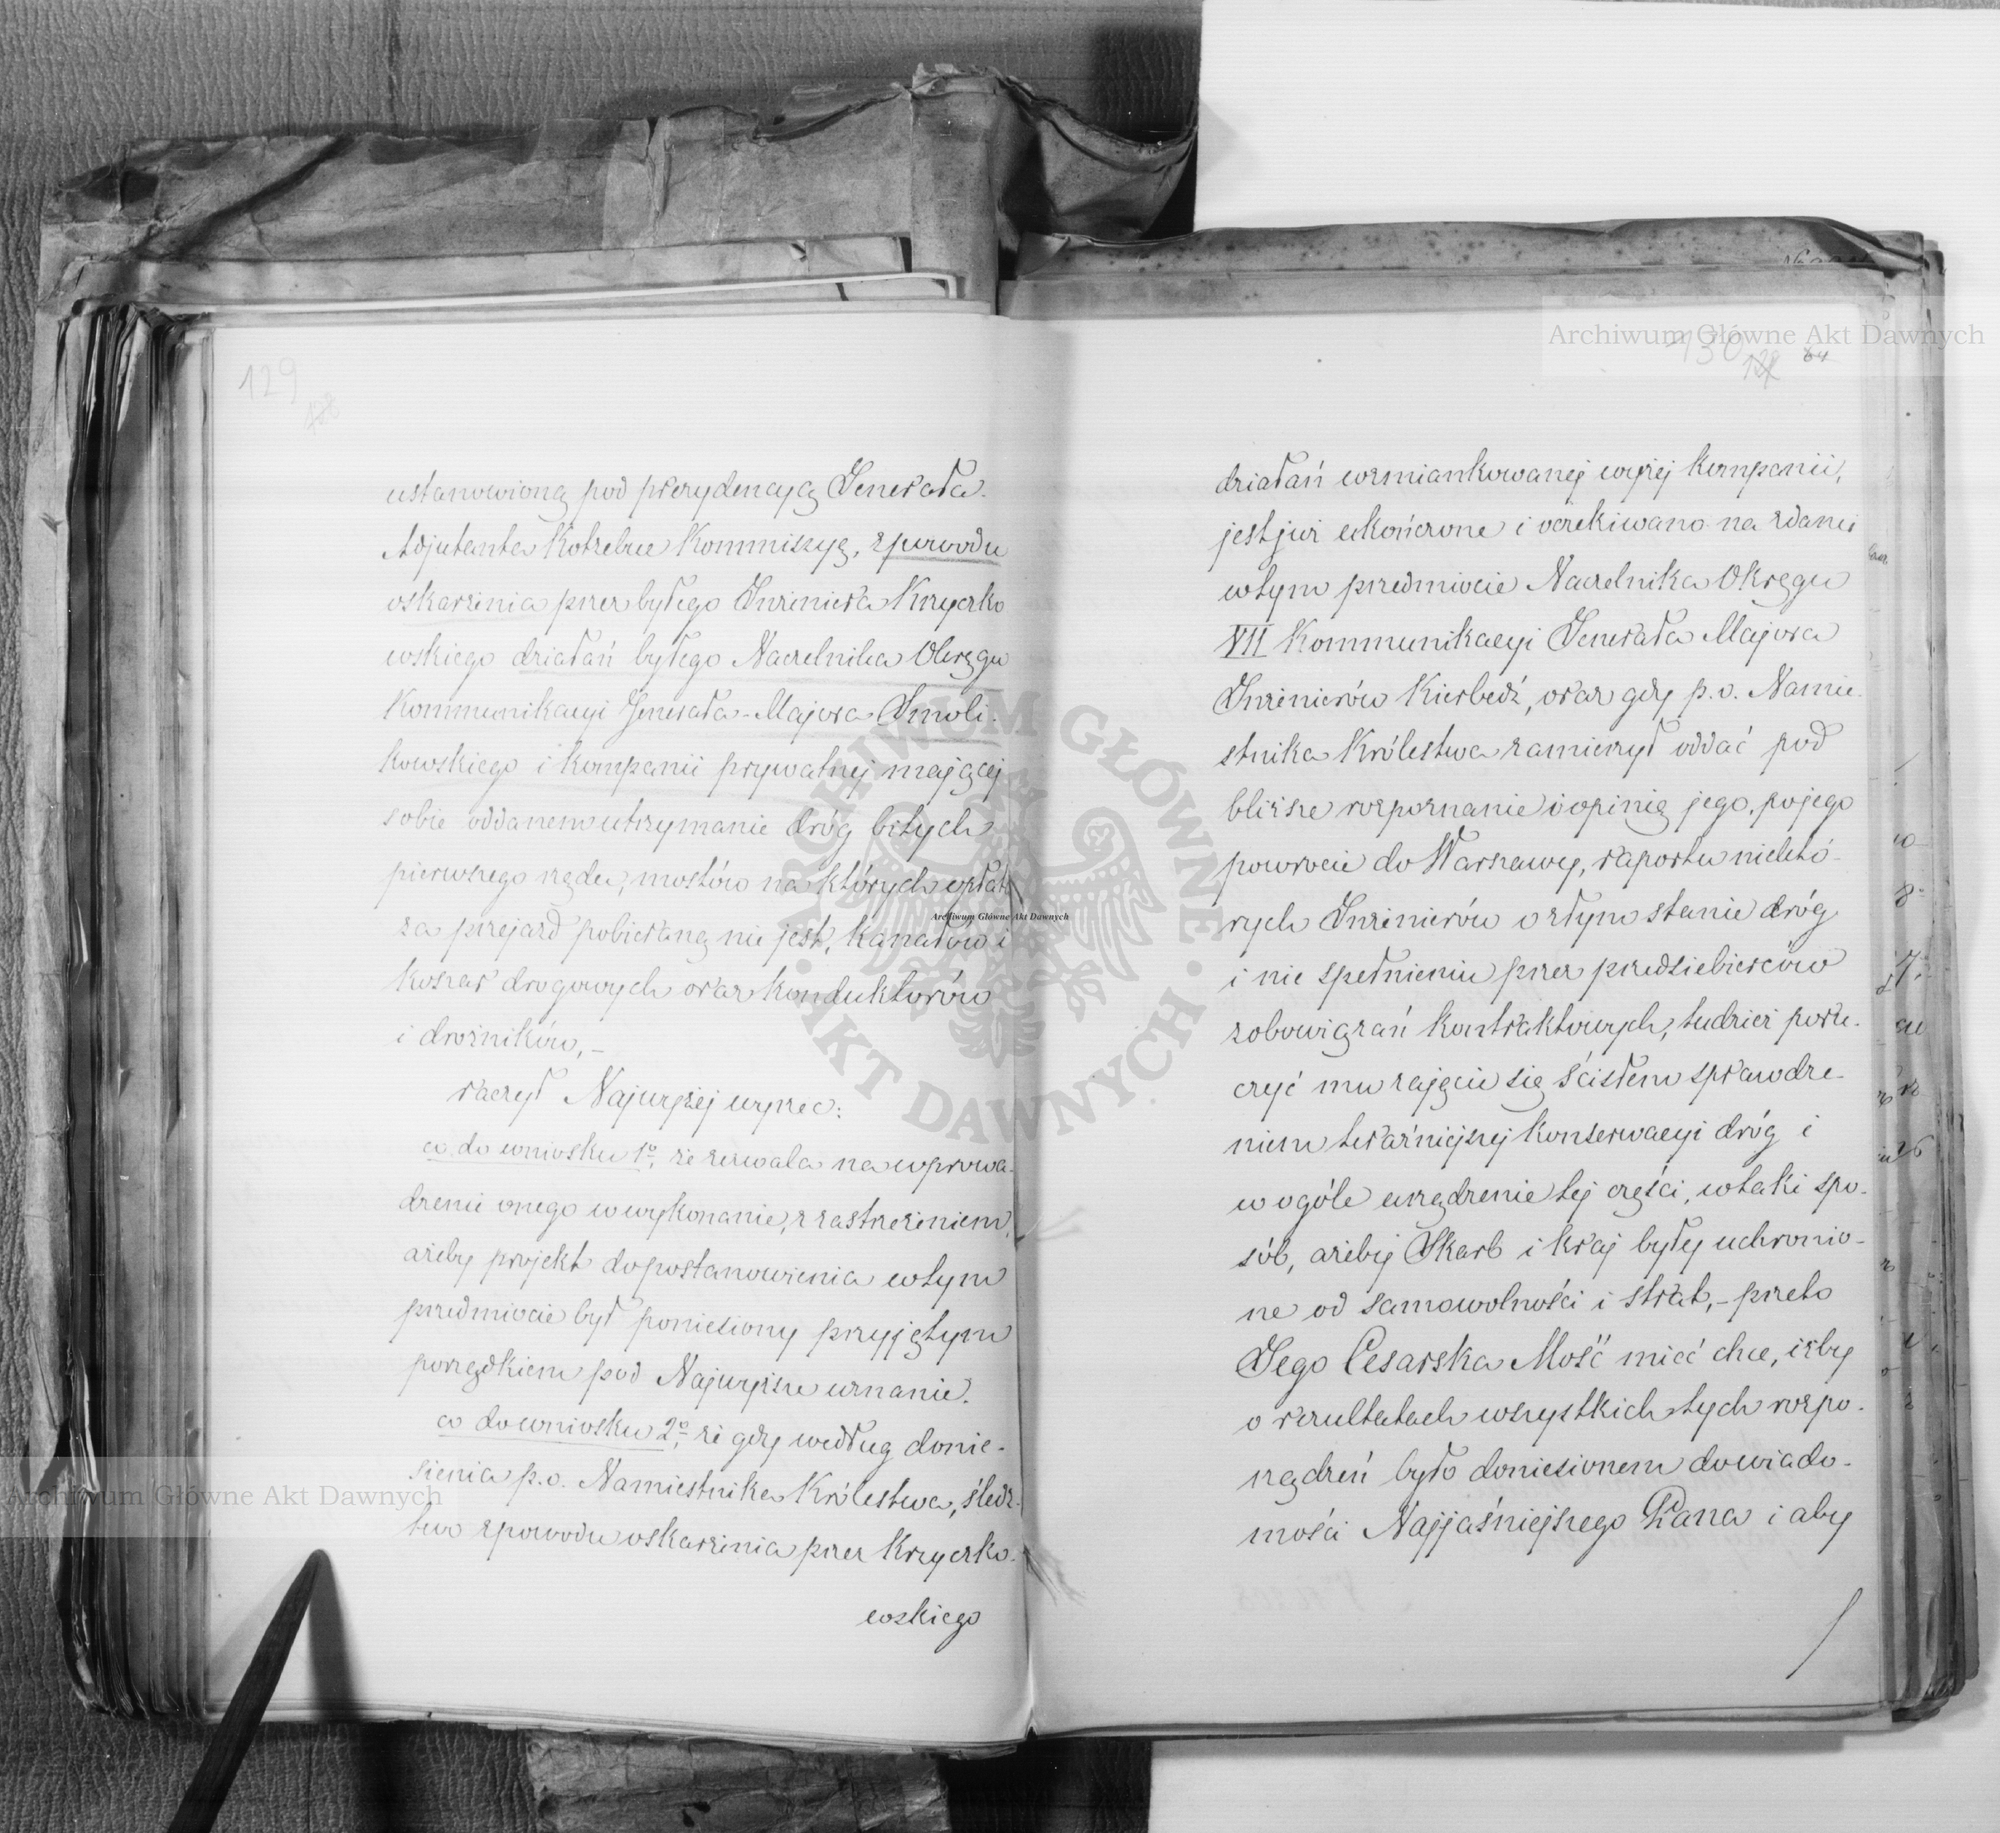 129
128
ustanowioną pod prezydencyą Jenerała
Adjutanta Kotzebue Kommiszyę, z powodu
oskarżenia przez byłego Inżiniera Krzyczko
wskiego działań byłego Naczelnika Okręgu
Kommunikacyi Jenerała-Majora Smoli-
kowskiego i kompanii prywatnej mającej
sobie oddanem utrzymanie dróg bitych
pierwszego rzędu, mostów na których opłata
za przejazd pobieraną nie jest, kanałów i
koszar drogowych oraz konduktorów
i drożników,-
raczył Najwyżej wyrzec:
co do wniosku 1º, że zezwala na wprowa-
dzenie onego w wykonanie, z zastrzeżeniem,
ażeby projekt do postanowienia w tym
przedmiocie był poniesiony przyjętym
porządkiem pod Najwyższe uznanie.
co do wniosku 2º, że gdy według donie-
sienia p.o. Namiestnika Królestwa, śledz-
two z powodu oskarżenia przez Krzyczko-
wskiego
130
84
działań wzmiankowanej wyżej kompanii,
jest już ukończone i oczekiwano na zdanie
w tym przedmiocie Naczelnika Okręgu
XII Kommunikacyi Jenerała Majora
Inżinierów Kierbedź, oraz gdy p.o. Namie-
stnika Królestwa zamierzył oddać pod
bliższe rozpoznanie i opinię jego, po jego
powrocie do Warszawy, raporta niektó-
rych Inżinierów o złym stanie dróg
i nie spełnieniu przez przedsiębierców
zobowiązań kontraktowych, tudzież poru-
czyć mu zajęcie się ścisłem sprawdze-
niem teraźniejszej konserwacyi dróg i
w ogóle urządzenie tej części, w taki spo-
sób, ażeby Skarb i kraj były uchronio-
ne od samowolności i strat,- przeto
Jego Cesarska Mość mieć chce, iżby
o rezultatach wszystkich tych rozpo-
rządzeń było doniesionem do wiado-
mości Najjaśniejszego Pana i aby
Archiwum Główne Akt Dawnych
Archiwum Główne Akt Dawnych
Archiwum Główne Akt Dawnych
ARCHIWUM GŁÓWNE AKT DAWNYCH